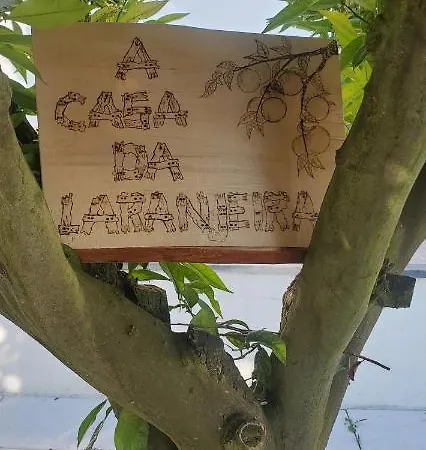 A
CASA
DA
LARANJEIRA